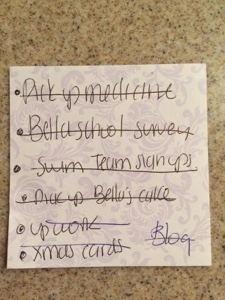 Pick up medicine
Bella school survey
Swim Team sign ups
Pick up Bella's cake
upwork
xmas cards
Blog